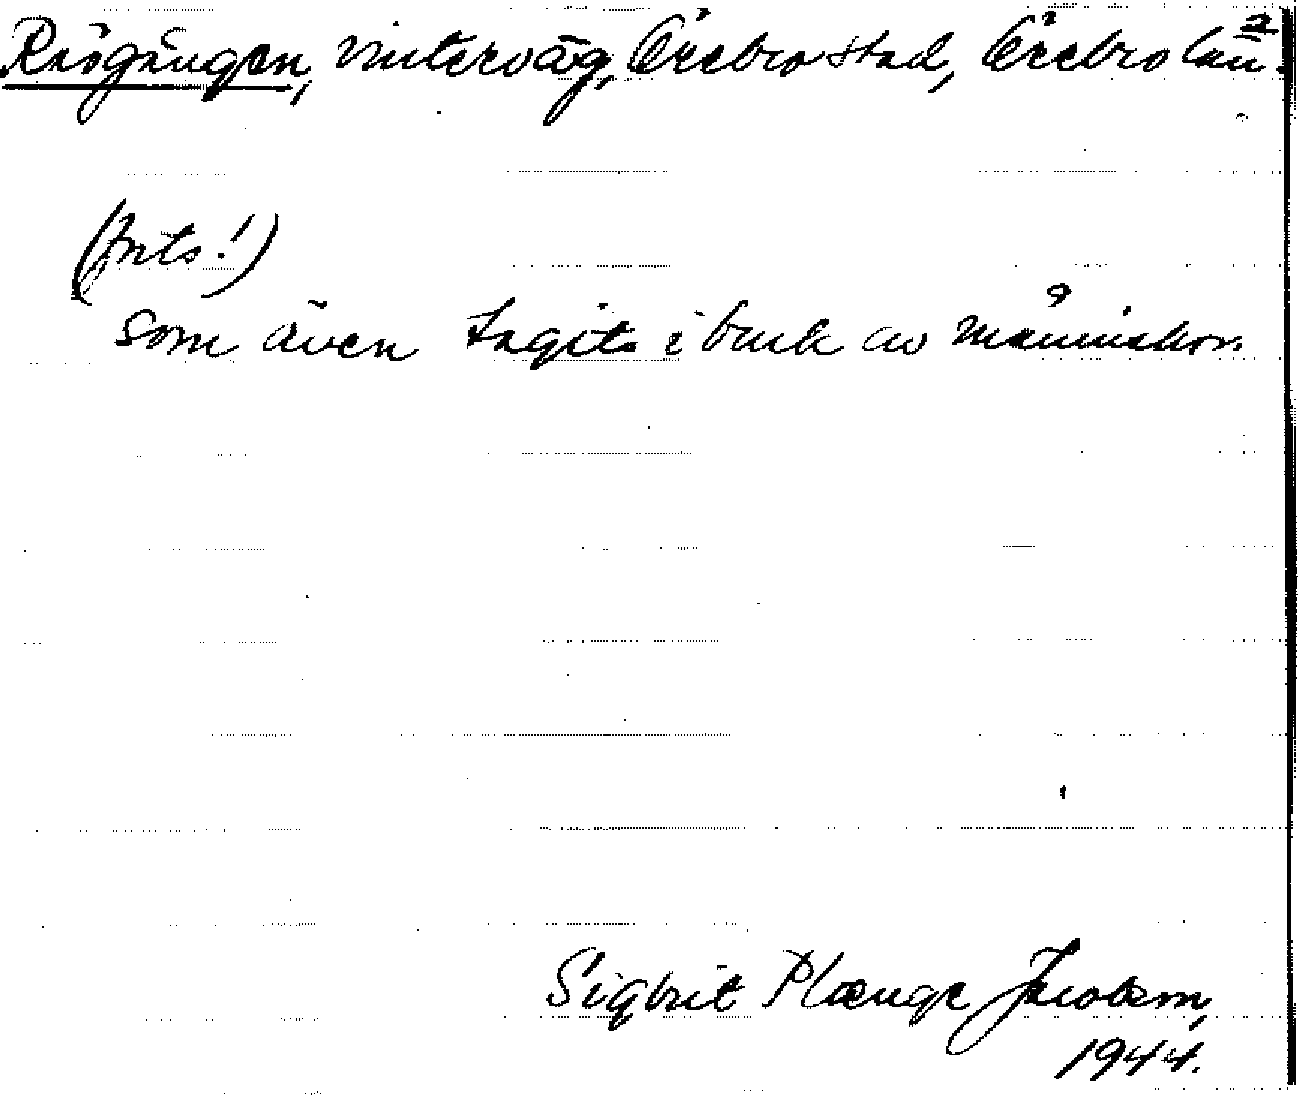 Rågången, vinterväg, Örebro stad, Örebro län. 2
(forts!)
som även tagits i bruk av människor.
Sigbrit Plænge Jacobson,
1944.